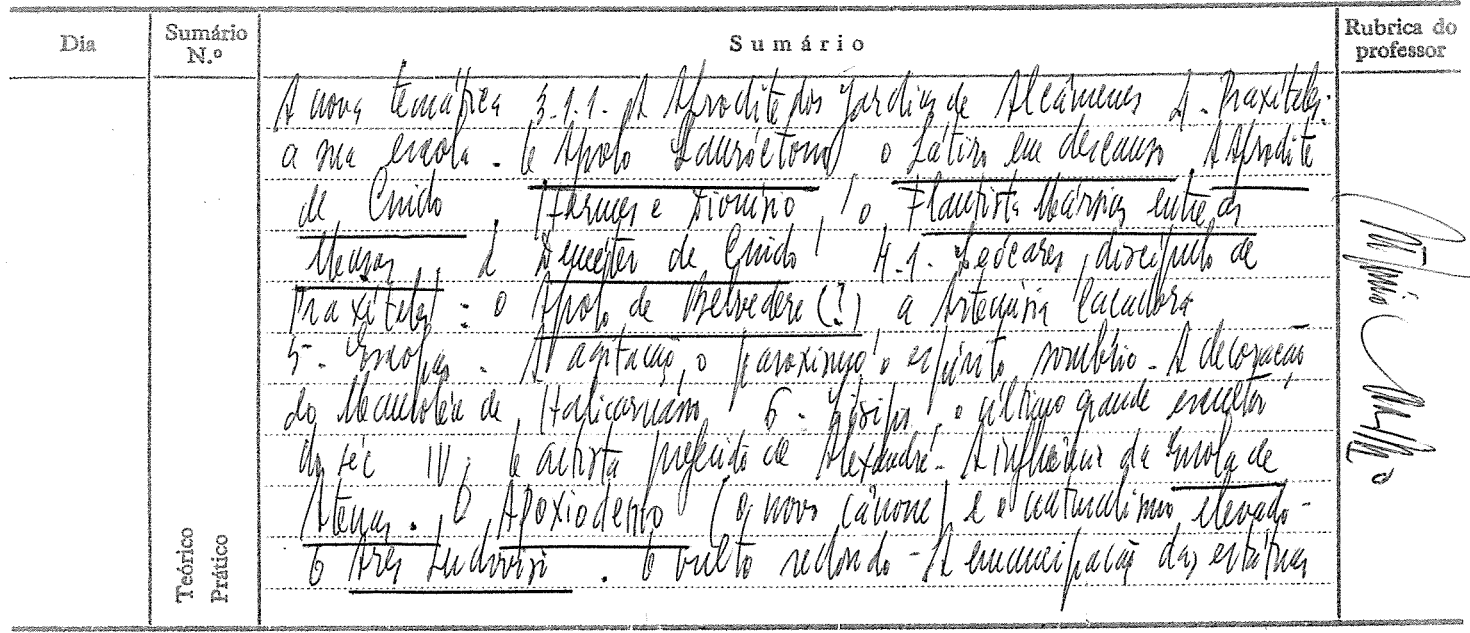 Dia
Sumário N.º
Sumário
Rubrica do professor
A nova temática 3.1.1. A Afrodite dos Jardins de Alcámenes 4. Praxíteles.
a sua escola. O Apolo Sauróctono, o Sátiro em descanso A Afrodite
de Cnido, Hermes e Dionísio, o Flautista Mársias entre as
Musas, Deméter de Cnido 4.1. Leócares, discípulo de
Praxíteles: o Apolo de Belvedere (?) a Artemísia Caçadora
5 - Escopas. A agitação, o paroxismo o espírito sombrio - A decoração
do Mausoléu de Halicarnasso 6 - Lísipo, o último grande escultor
do séc IV, o artista preferido de Alexandre - A influência da Escola de
Atenas. O Apoxiomenos (o novo cânone) e o naturalismo elevado -
O Ares Ludovisi. O vulto redondo - A emancipação das estátuas
Teórico
Prático